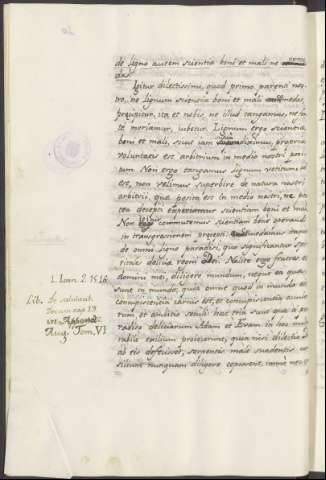 de ligno autem scientiæ boni et mali ne
das.
Igitur dilectissimi, quod primo parenti nos-
tro, ne lignum scientiæ boni et mali
præcipitur, ita et nobis, ne illud tangamus, ne for-
te moriamur, iubetur. Lignum ergo scientiæ
boni et mali, sicut iam diximus, propria
voluntatis est arbitrium in medio nostri posi-
tum. Non ergo tangamus lignum vetitum, id
est, non velimus superbire de natura nostri
arbitrii, quæ posita est in medio nostri, ne pos-
tea decepti experiamur scientiam boni et mali
Non commutemus scientiam boni operandi
in transgressionem præcepti
de omni ligno paradisi, quæ significantur spi-
ritales divitiæ regni Dei. Nolite ergo fratres et
domini mei, diligere mundum, neque ea quæ
sunt in mundo, quia omne quod in mundo est
concupiscentia carnis est, et concupiscentia oculo-
rum, et ambitio sæculi hæc tria sunt quæ a pa-
radiso deliciarum Adam et Evam in hoc mi-
rabile exilium proiecerunt, quia nisi dilectio
ab eis defecisset, serpentis male suadentis con-
silium nunquam diligere cepissent, immo nec
1. Ioan. 2. 15. 16
Lib. de salutarib.
Docum. cap. 13
in Append.
Aug. Tom. VI